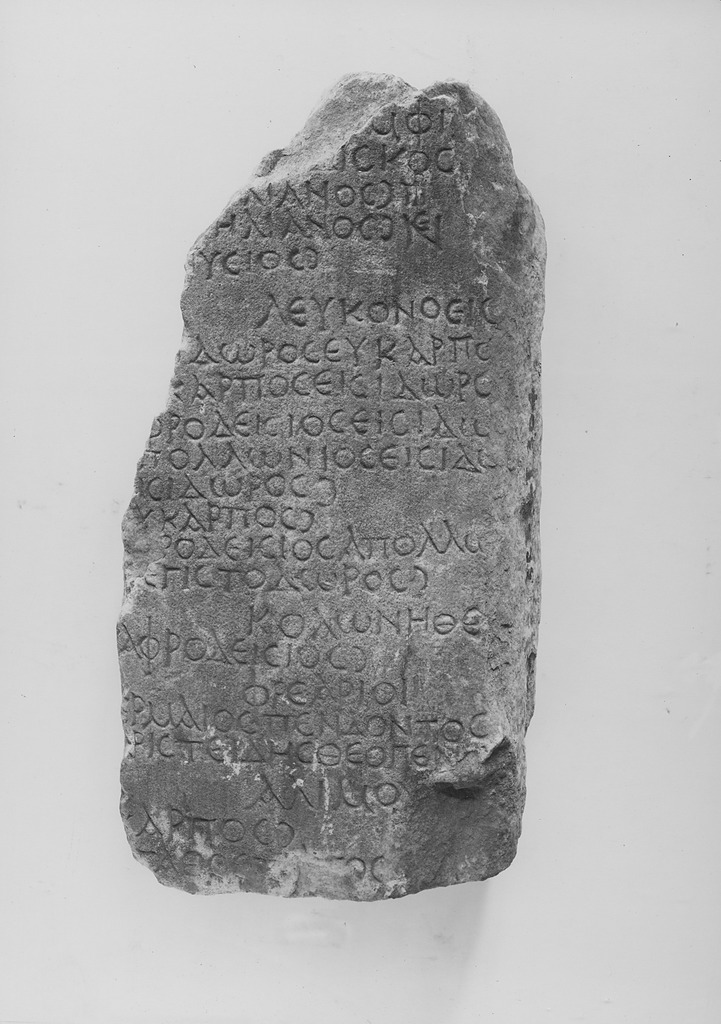 ΜΦΙ
ΙΣΚΟΣ
ΛΙΑΝΟΣ
ΗΛΙΑΝΟΣ
ΥΣΙΟΣ Ͻ
ΛΕΥΚΟΝΟΕΙΣ
ΔΩΡΟΣ ΕΥΚΑΡΠΟ
ΚΑΡΠΟΣ ΕΙΣΙΔΩΡΟ
ΟΡΟΔΕΙΣΙΟΣ ΕΙΣΙΔΩ
ΠΟΛΛΩΝΙΟΣ ΕΙΣΙΔΩ
ΣΙΔΩΡΟΣ Ͻ
ΥΚΑΡΠΟΣ Ͻ
ΡΟΔΕΙΣΙΟΣ ΑΠΟΛΛΩ
ΕΠΙΣΤΟΔΩΡΟΣ Ͻ
ΚΟΛΩΝΗΘΕ
ΑΦΡΟΔΕΙΣΙΟΣ Ͻ
ΟΡΕΑΡΙΟΙ
ΕΡΜΑΙΟΣ ΠΕΝΔΟΝΤΟΣ
ΡΙΣΤΕΙΔΗΣ ΘΕΟΓΕΝΟ
ΑΛΙΜΟ
ΚΑΡΠΟΣ Ͻ